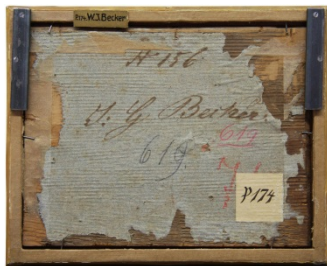 P174 W.J. Becker
No 156
J. G. Becker.
619
619.
P174